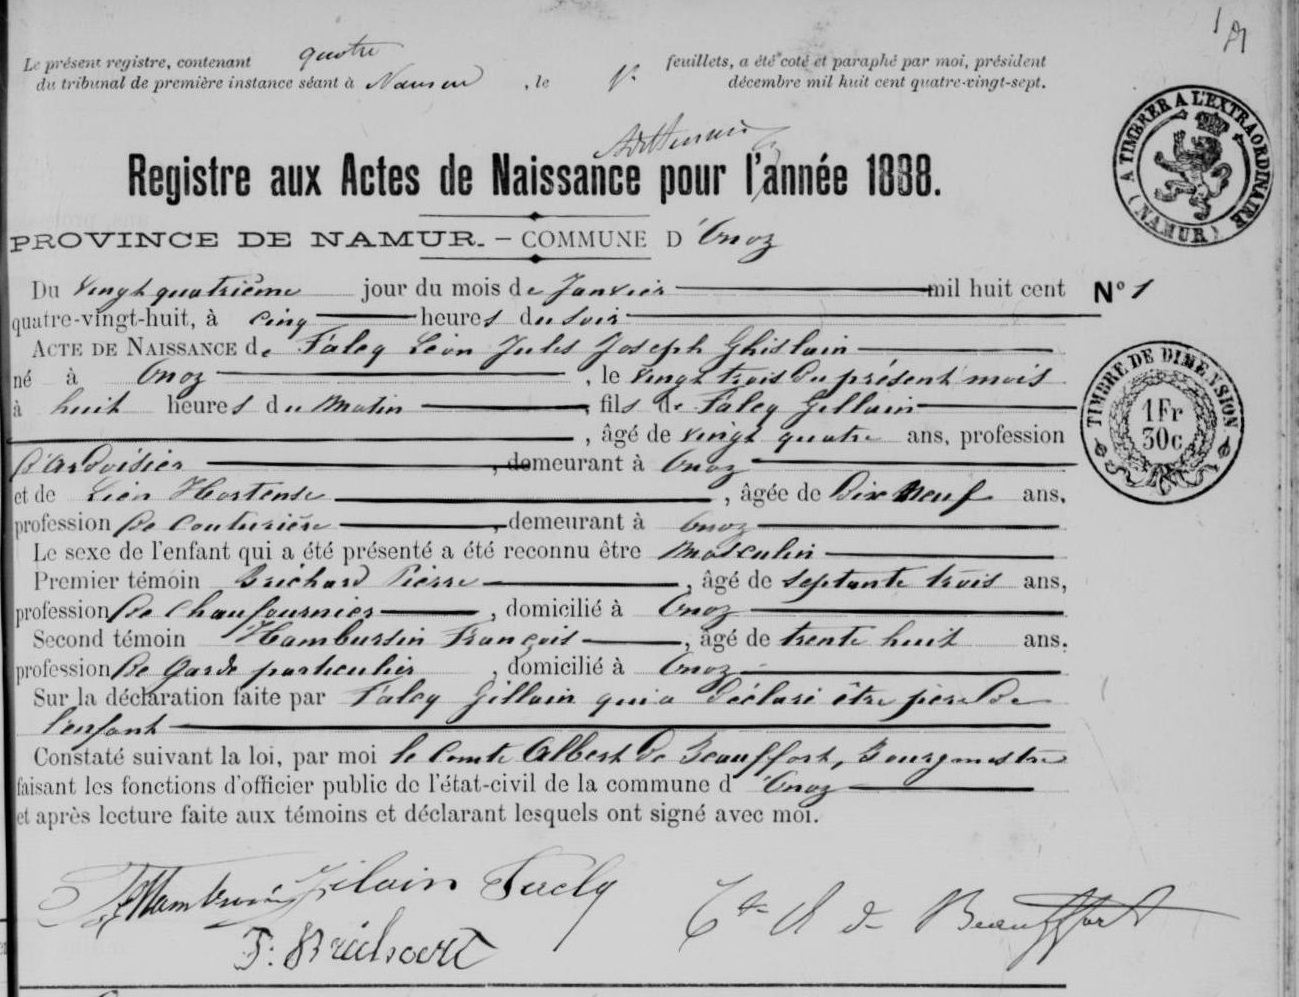 Le présent registre, contenant quatre feuillets, a été coté et paraphé par moi, président
du tribunal de première instance séant à Namur, le 1er décembre mil huit cent quatre-vingt-sept.
Registre aux Actes de Naissance pour l'année 1888.
PROVINCE DE NAMUR. – COMMUNE D'Onoz
A TIMBRER A L'EXTRAORDINAIRE (NAMUR)
Du vingt quatrième jour du mois de Janvier mil huit cent
No 1
quatre-vingt-huit, à cinq heures du soir
ACTE DE NAISSANCE de Falcq Léon Jules Joseph Ghislain
né à Onoz, le vingt trois du présent mois
à huit heures du matin, fils de Falcq Gillain
TIMBRE DE DIMENSION 1 Fr 30c
, âgé de vingt quatre ans, profession
d'ardoisier, demeurant à Onoz
et de Hortense, âgée de dix neuf ans,
profession de couturière, demeurant à Onoz
Le sexe de l'enfant qui a été présenté a été reconnu être masculin
Premier témoin Bréchard Pierre, âgé de septante trois ans,
profession de chaufournier, domicilié à Onoz
Second témoin Hambursin François, âgé de trente huit ans.
profession de garde particulier, domicilié à Onoz
Sur la déclaration faite par Falcq Gillain qui a déclaré être père de
l'enfant
Constaté suivant la loi, par moi le Comte Albert de Beauffort, Bourgmestre
faisant les fonctions d'officier public de l'état-civil de la commune d'Onoz
et après lecture faite aux témoins et déclarant lesquels ont signé avec moi.
Cte A de Beauffort